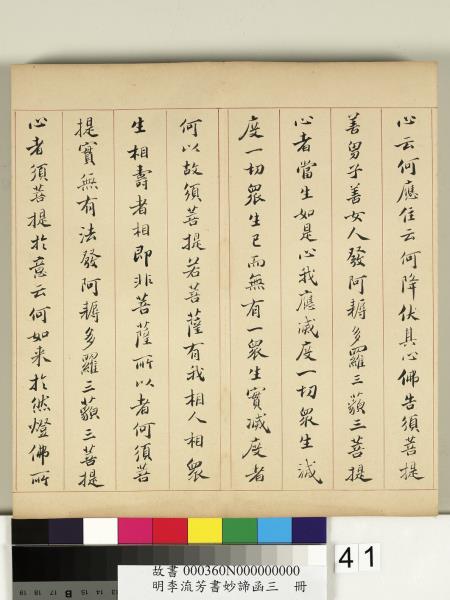 心云何應住云何降伏其心佛告須菩提
善男子善女人發阿耨多羅三藐三菩提
心者當生如是心我應滅度一切眾生滅
度一切眾生已而無有一眾生實滅度者
何以故須菩提若菩薩有我相人相眾
生相壽者相即非菩薩所以者何須菩
提實無有法發阿耨多羅三藐三菩提
心者須菩提於意云何如來於然燈佛所
41
故書 000360N000000000
明李流芳書妙諦函三 冊